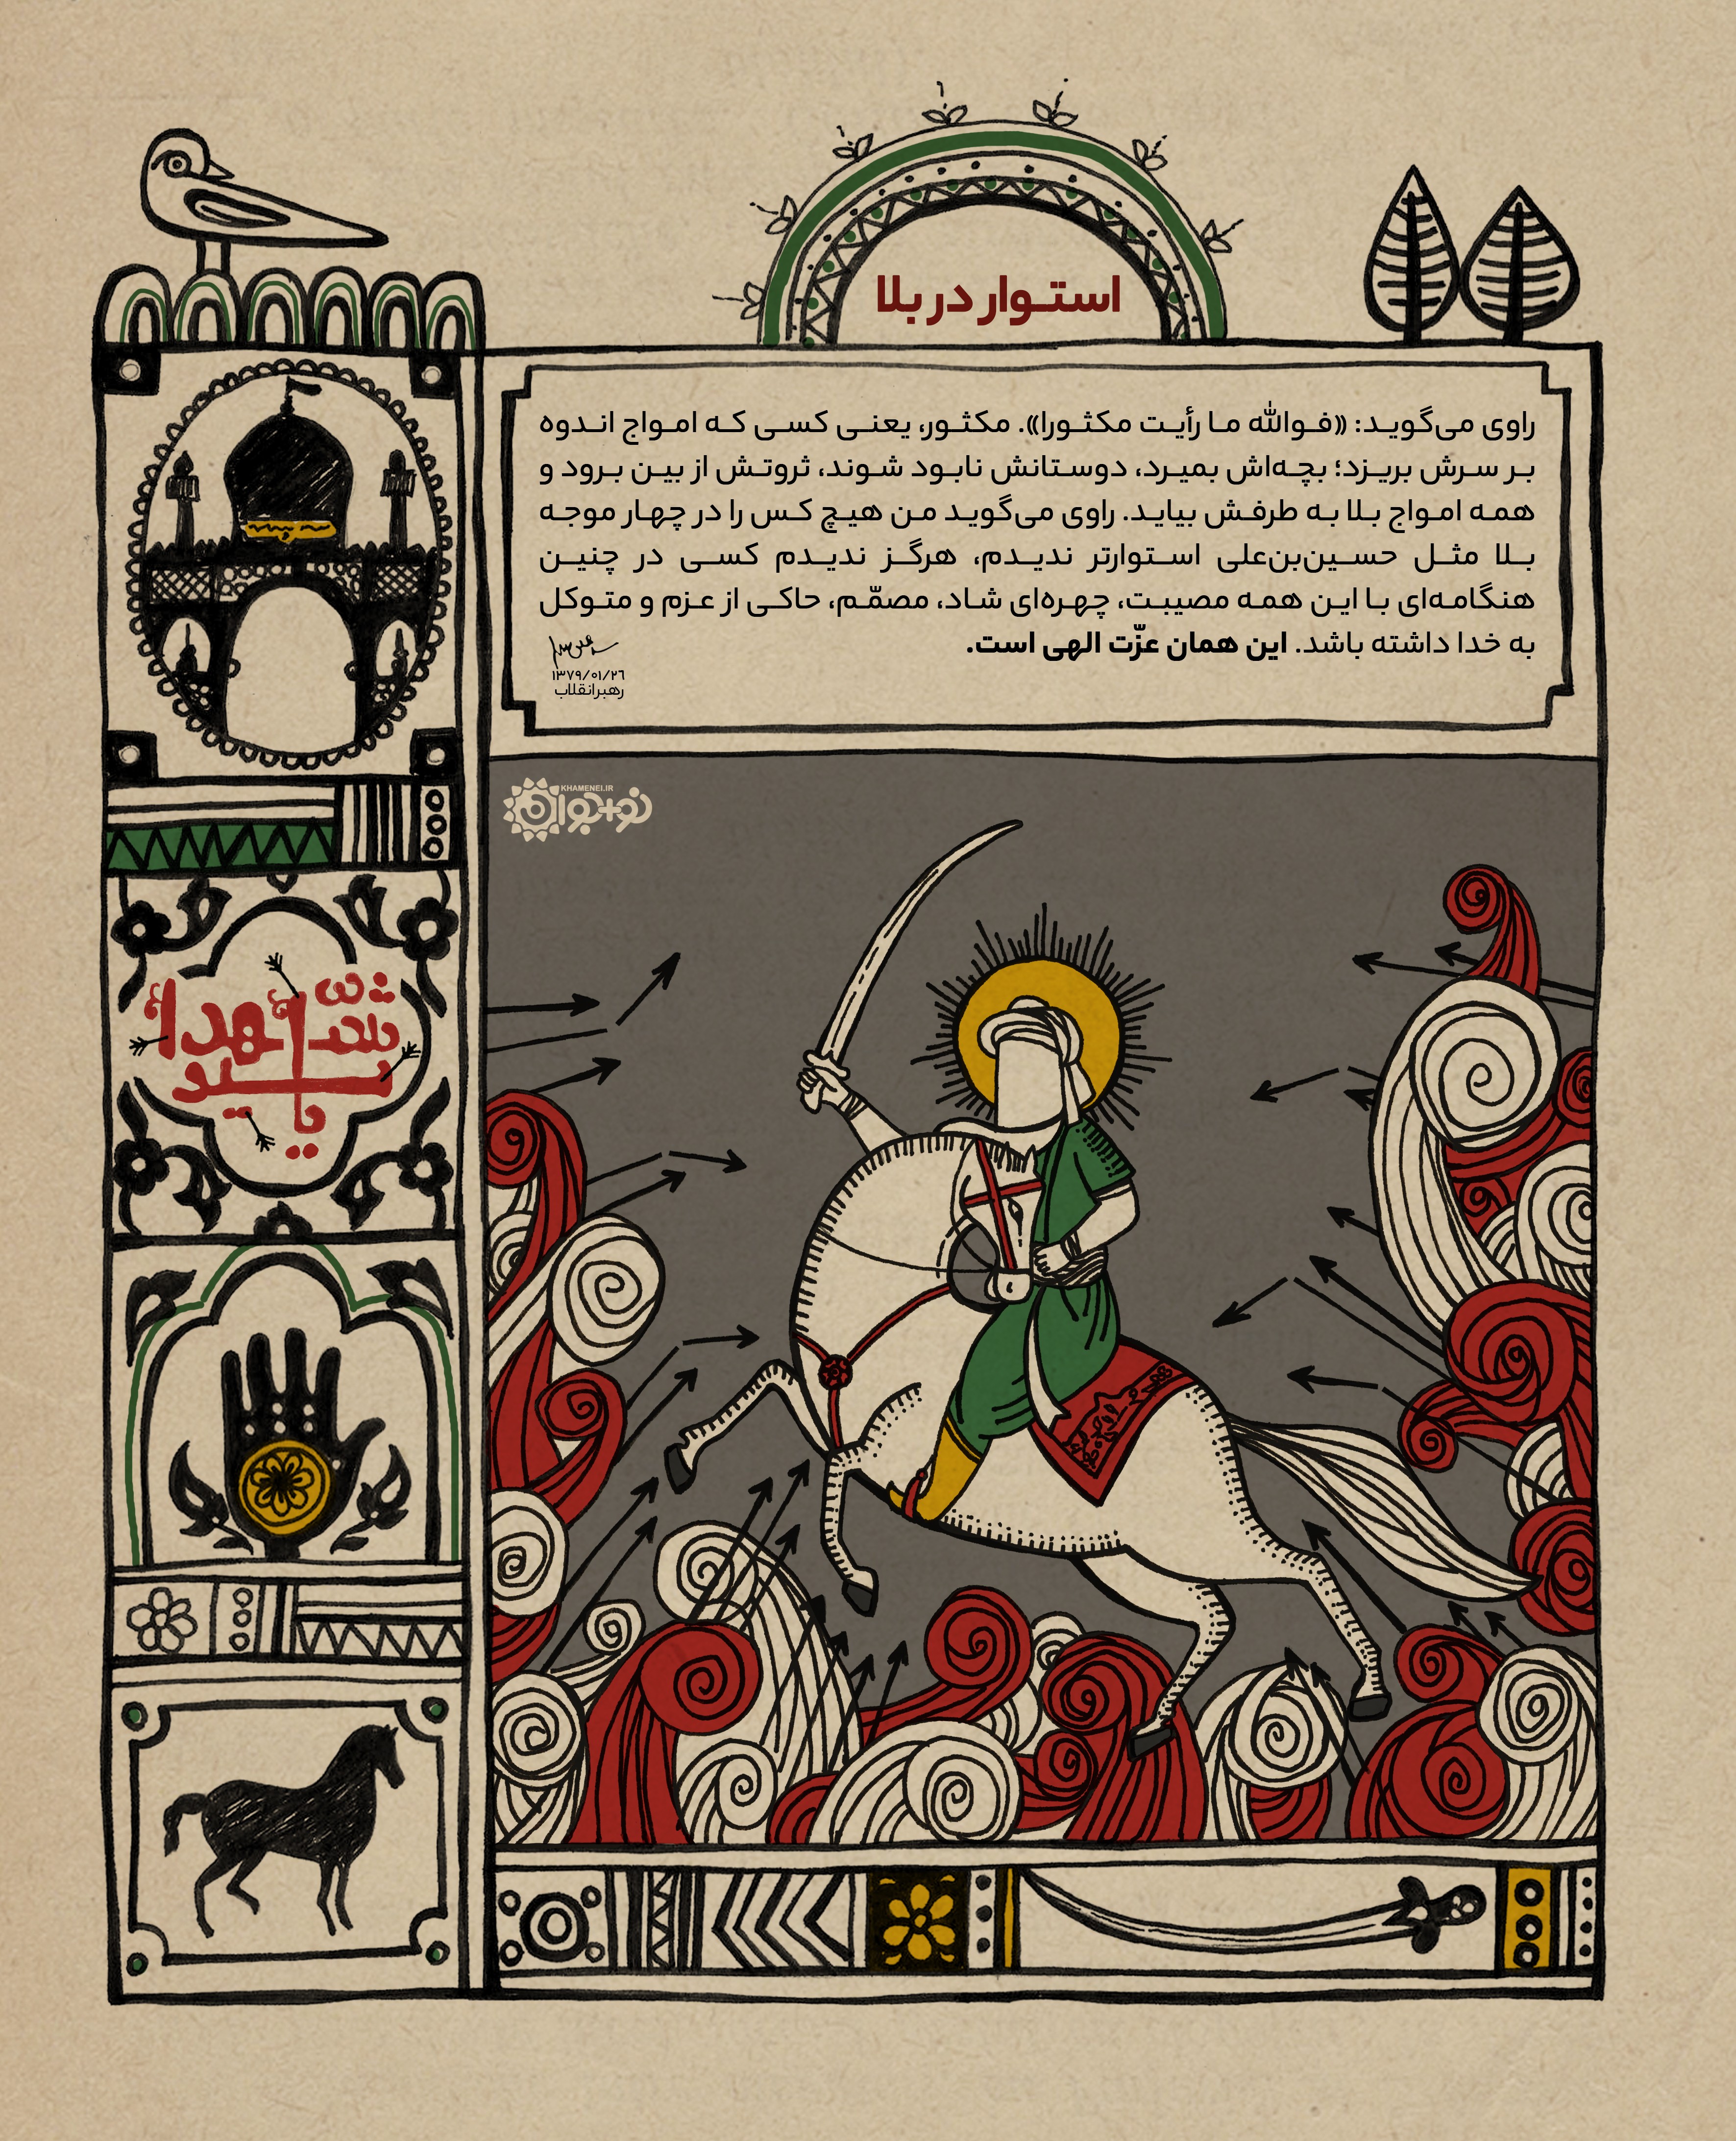 استوار در بلا
راوی می‌گوید: «فوالله ما رأیت مکثورا». مکثور، یعنی کسی که امواج اندوه
بر سرش بریزد؛ بچه‌اش بمیرد، دوستانش نابود شوند، ثروتش از بین برود و
همه امواج بلا به طرفش بیاید. راوی می‌گوید من هیچ کس را در چهار موجه
بلا مثل حسین‌بن‌علی استوارتر ندیدم، هرگز ندیدم کسی در چنین
هنگامه‌ای با این همه مصیبت، چهره‌ای شاد، مصمّم، حاکی از عزم و متوکل
به خدا داشته باشد. این همان عزّت الهی است.
۱۳۷۹/۰۱/۲٦
رهبرانقلاب
KHAMENEI.IR
نو+جوان
یا سید الشهدا